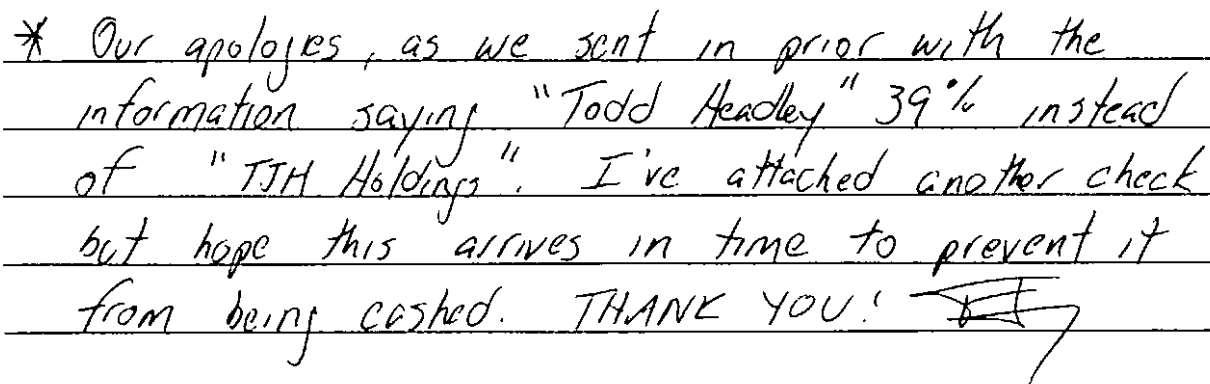 * Our apologies, as we sent in prior with the
information saying "Todd Headley" 39% instead
of "TJH Holdings". I've attached another check
but hope this arrives in time to prevent it
from being cashed. THANK YOU!